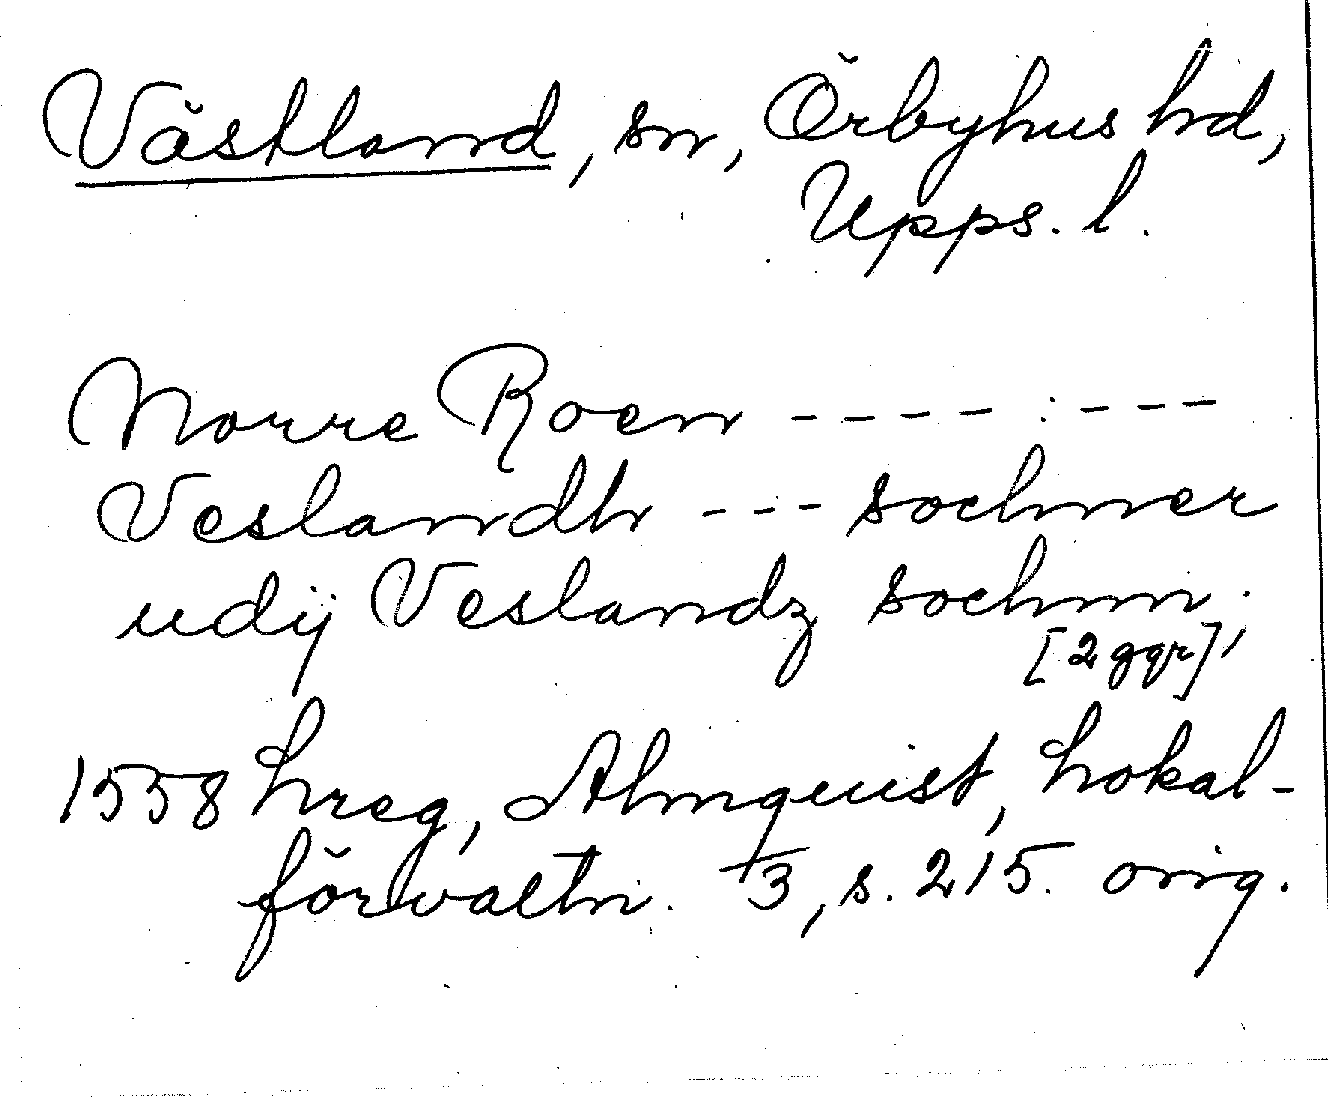 Västland, sn, Örbyhus hd,
Upps. l.
Norre Roen - - - - - : - - -
Veslandh - - - sochner
udij Veslandz sochnn.
[2 ggr],
1558 hreg, Almquist, Lokal-
förvaltn. 1/3, s. 215. orig.